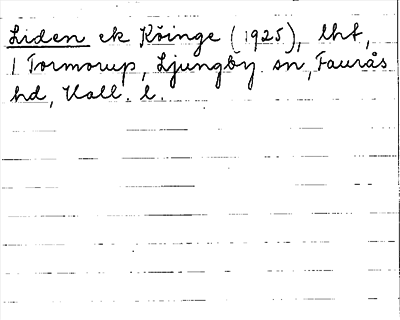 Liden ek Köinge (1925), lht,
1 Tormorup, Ljungby sn, Faurås
hd, Hall. l.